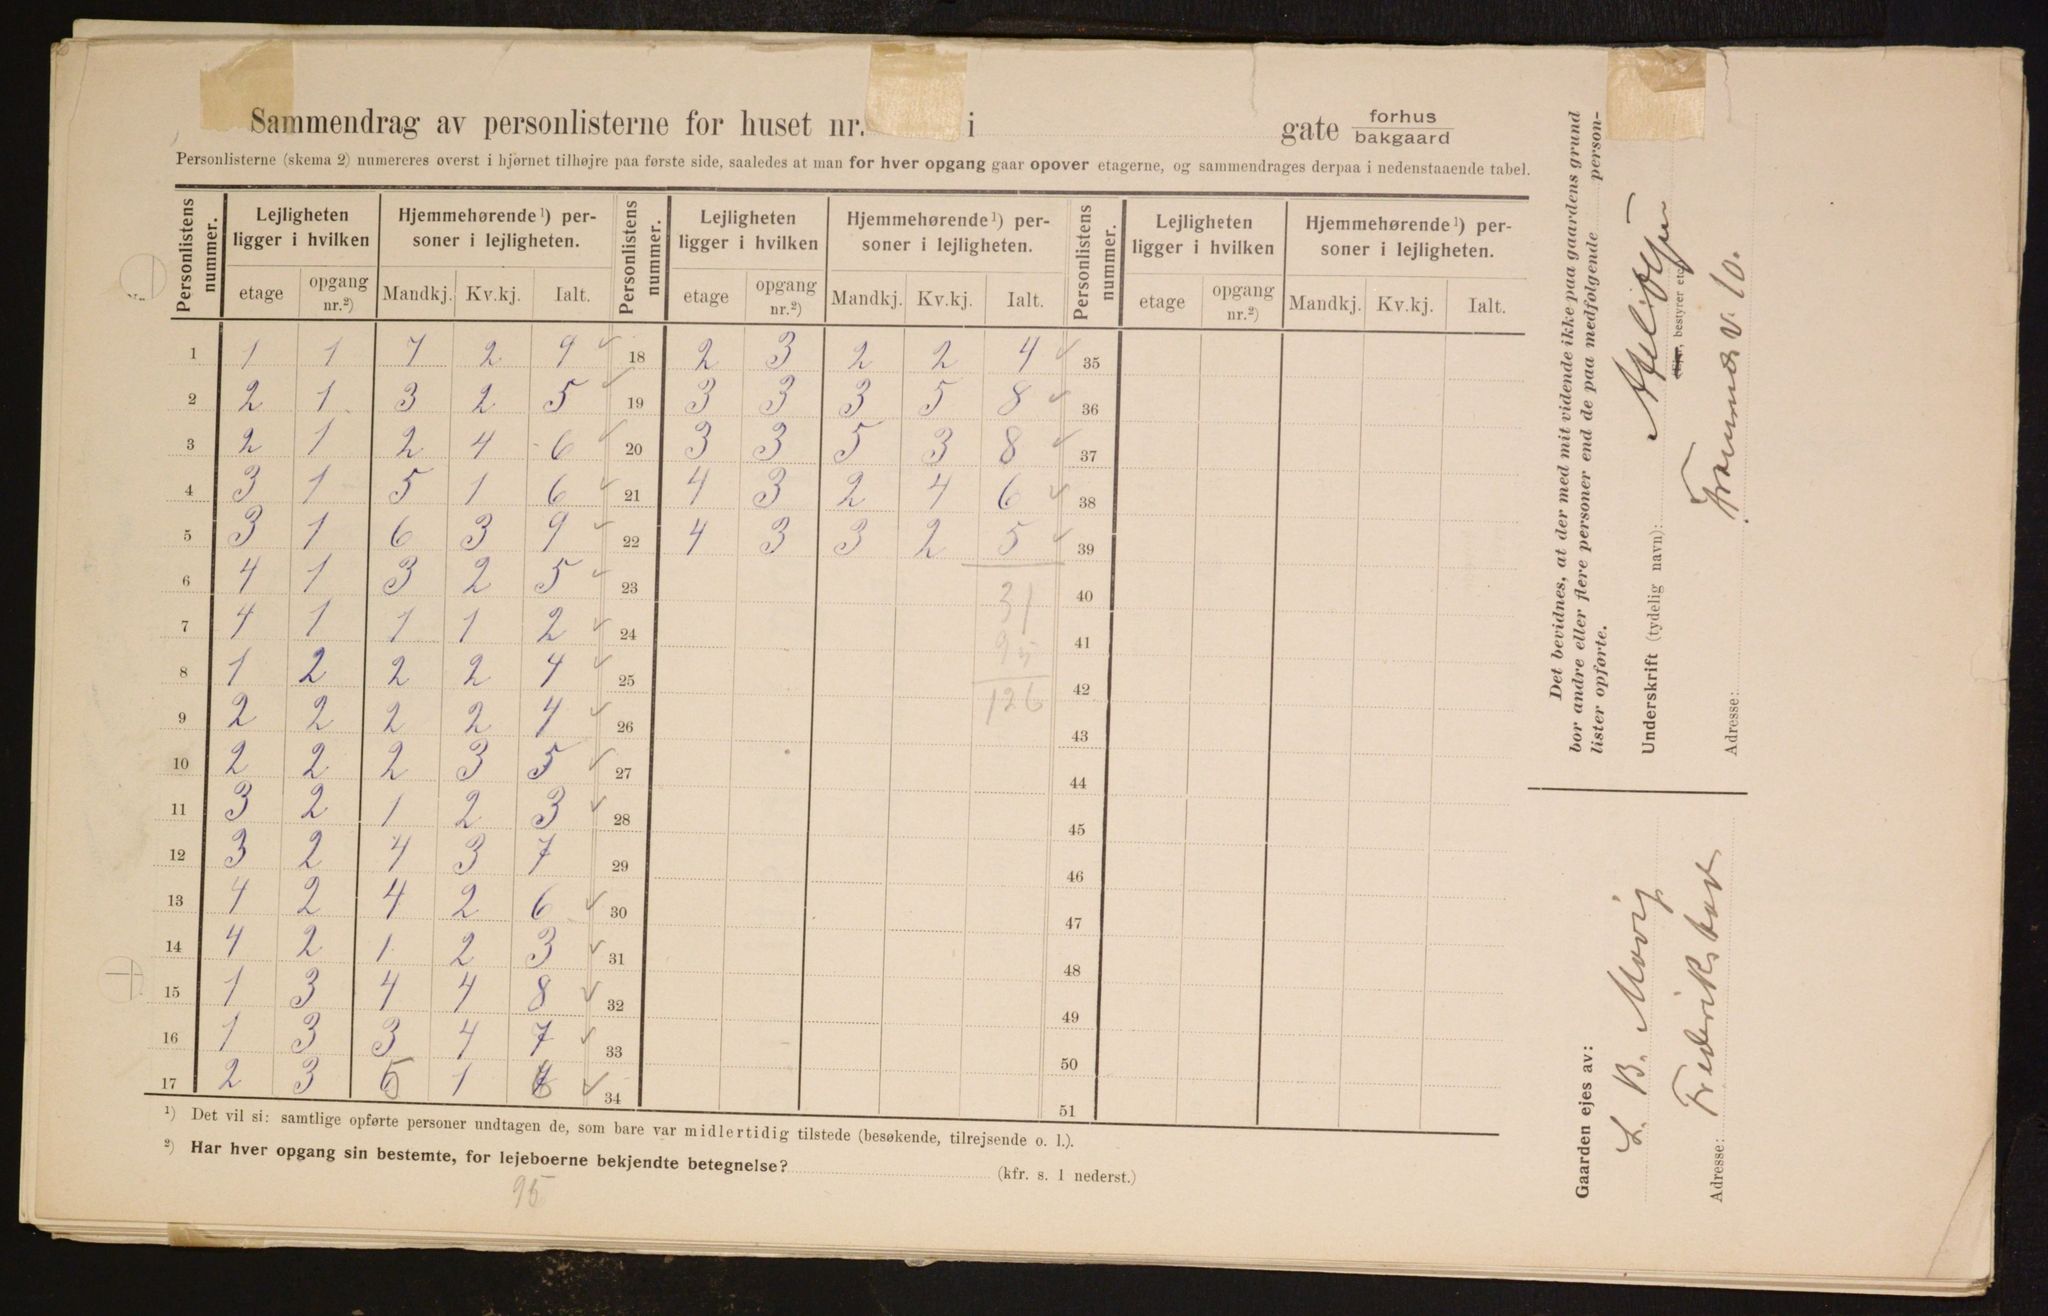 Sammendrag av personlisterne for huset nr. i gate forhus
bakgaard
Personlisterne (skema 2) numereres øverst i hjørnet tilhøjre paa første side, saaledes at man for hver opgang gaar opover etagerne, og sammendrages derpaa i nedenstaaende tabel.
Personlistens nummer. Lejligheten ligger i hvilken Hjemmehørende¹) personer i lejligheten. Personlistens nummer. Lejligheten ligger i hvilken Hjemmehørende¹) personer i lejligheten. Personlistens nummer. Lejligheten ligger i hvilken Hjemmehørende¹) personer i lejligheten.
etage opgang nr.²) Mandkj. Kv.kj. Ialt. etage opgang nr.²) Mandkj. Kv.kj. Ialt. etage opgang nr.²) Mandkj. Kv.kj. Ialt.
1 1 1 7 2 9 ✓ 18 2 3 2 2 4 ✓ 35
2 2 1 3 2 5 ✓ 19 3 3 3 5 8 ✓ 36
3 2 1 2 4 6 ✓ 20 3 3 5 3 8 ✓ 37
4 3 1 5 1 6 ✓ 21 4 3 2 4 6 ✓ 38
5 3 1 6 3 9 ✓ 22 4 3 3 2 5 ✓ 39
6 4 1 3 2 5 ✓ 23 31 40
7 4 1 1 1 2 ✓ 24 95 41
8 1 2 2 2 4 ✓ 25 126 42
9 2 2 2 2 4 ✓ 26 43
10 2 2 2 3 5 ✓ 27 44
11 3 2 1 2 3 ✓ 28 45
12 3 2 4 3 7 29 46
13 4 2 4 2 6 ✓ 30 47
14 4 2 1 2 3 ✓ 31 48
15 1 3 4 4 8 ✓ 32 49
16 1 3 3 4 7 ✓ 33 50
17 2 3 5 1 6 ✓ 34 51
¹) Det vil si: samtlige opførte personer undtagen de, som bare var midlertidig tilstede (besøkende, tilrejsende o. l.).
²) Har hver opgang sin bestemte, for lejeboerne bekjendte betegnelse? (kfr. s. 1 nederst.)
95
Det bevidnes, at der med mit vidende ikke paa gaardens grund
bor andre eller flere personer end de paa medfølgende person-
lister opførte.
Underskrift (tydelig navn):
(Ejer, bestyrer etc.)
Adresse: v. 10.
Gaarden ejes av:
L. B. Movig
Adresse: Frederikstad